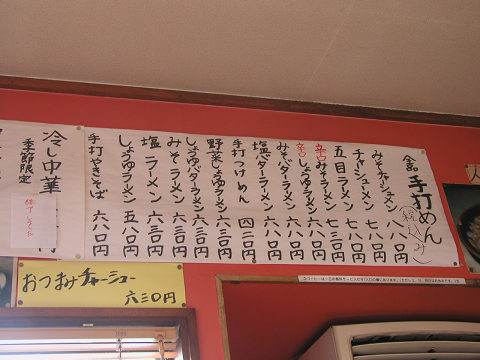 全品 手打めん(税込み)
みそチャーシューメン 八八〇円
チャーシューメン 七八〇円
五目ラーメン 七八〇円
辛口みそラーメン 七三〇円
辛口しょうゆラーメン 六八〇円
みそバターラーメン 六八〇円
塩バターラーメン 六八〇円
手打つけめん
野菜しょうゆラーメン 六三〇円
しょうゆバターラーメン 六三〇円
みそラーメン 六三〇円
塩ラーメン 六三〇円
しょうゆラーメン 五八〇円
手打やきそば 六八〇円
冷し中華 円
季節限定
終了しました
おつまみチャーシュー
六三〇円